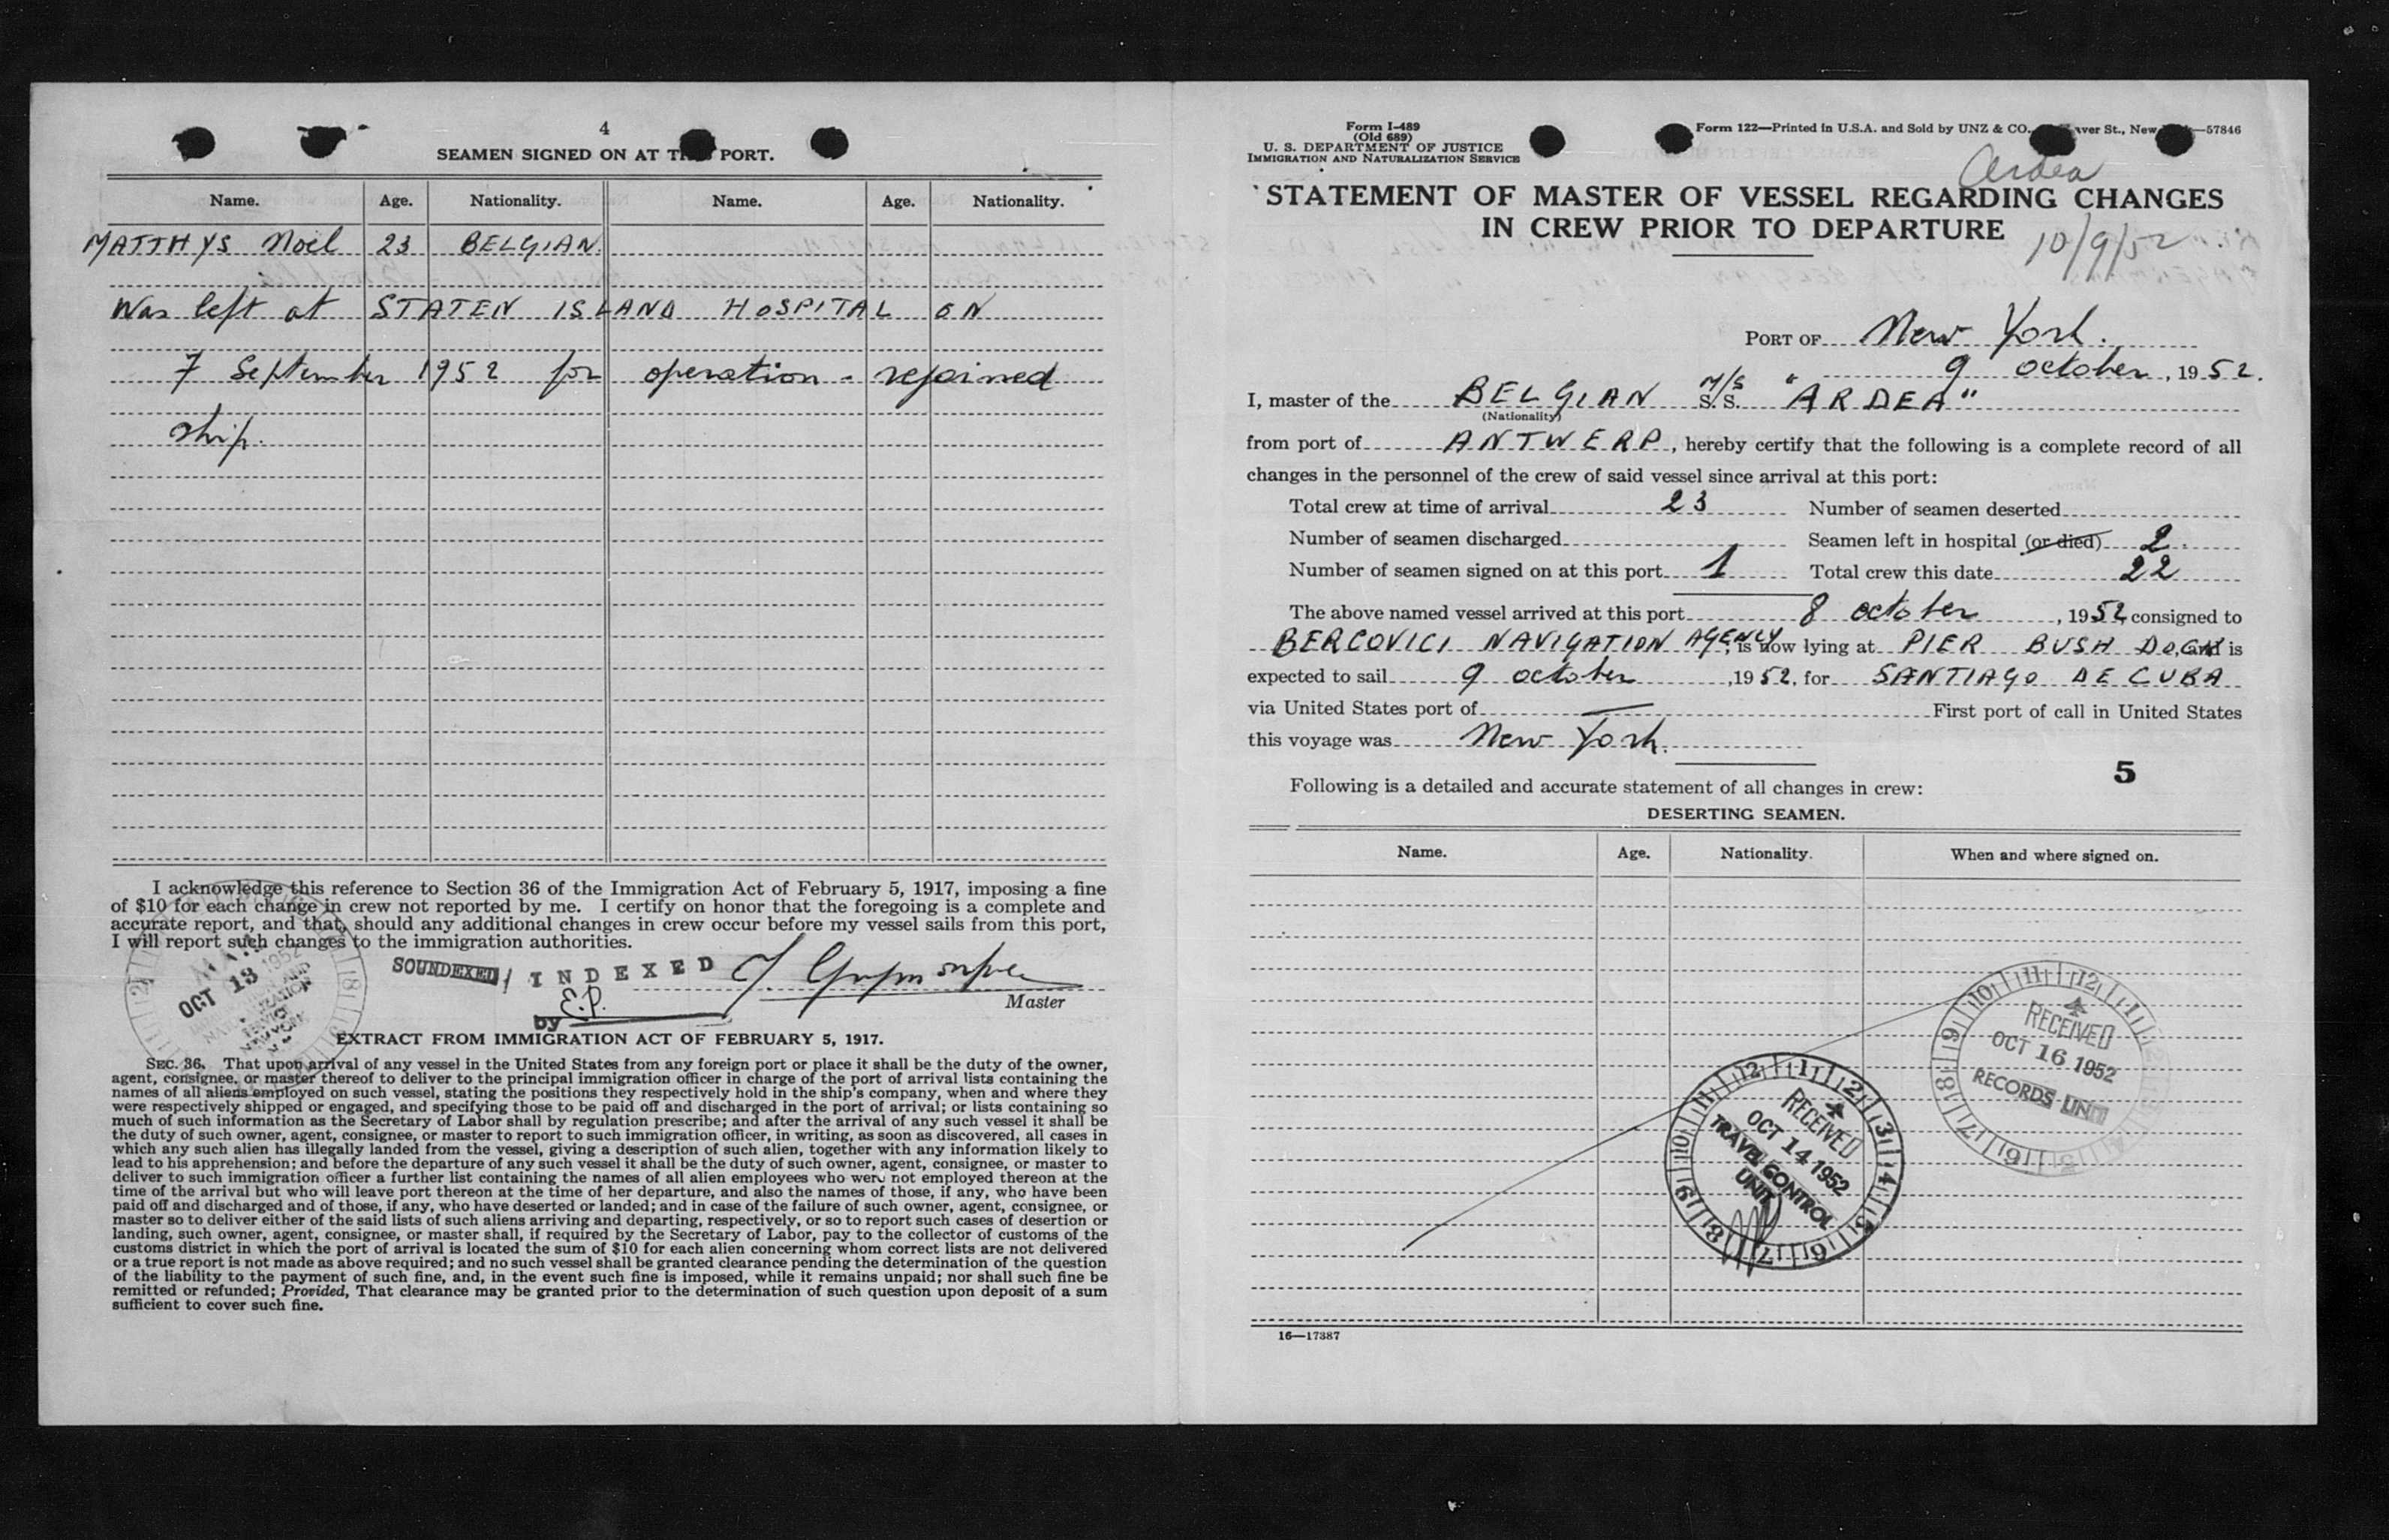 4
SEAMEN SIGNED ON AT PORT.
Name. Age. Nationality. Name. Age. Nationality.
MATTHYS Noël 23 BELGIAN.
Was left at STATEN ISLAND HOSPITAL ON
7 September 1952 for operation - rejoined
ship.
I acknowledge this reference to Section 36 of the Immigration Act of February 5, 1917, imposing a fine
of $10 for each change in crew not reported by me. I certify on honor that the foregoing is a complete and
accurate report, and that, should any additional changes in crew occur before my vessel sails from this port,
I will report such changes to the immigration authorities.
OCT 13 1952
SOUNDEXED INDEXED
by E.P.
Master
EXTRACT FROM IMMIGRATION ACT OF FEBRUARY 5, 1917.
SEC. 36. That upon arrival of any vessel in the United States from any foreign port or place it shall be the duty of the owner,
agent, consignee, or master thereof to deliver to the principal immigration officer in charge of the port of arrival lists containing the
names of all aliens employed on such vessel, stating the positions they respectively hold in the ship's company, when and where they
were respectively shipped or engaged, and specifying those to be paid off and discharged in the port of arrival; or lists containing so
much of such information as the Secretary of Labor shall by regulation prescribe; and after the arrival of any such vessel it shall be
the duty of such owner, agent, consignee, or master to report to such immigration officer, in writing, as soon as discovered, all cases in
which any such alien has illegally landed from the vessel, giving a description of such alien, together with any information likely to
lead to his apprehension; and before the departure of any such vessel it shall be the duty of such owner, agent, consignee, or master to
deliver to such immigration officer a further list containing the names of all alien employees who were not employed thereon at the
time of the arrival but who will leave port thereon at the time of her departure, and also the names of those, if any, who have been
paid off and discharged and of those, if any, who have deserted or landed; and in case of the failure of such owner, agent, consignee, or
master so to deliver either of the said lists of such aliens arriving and departing, respectively, or so to report such cases of desertion or
landing, such owner, agent, consignee, or master shall, if required by the Secretary of Labor, pay to the collector of customs of the
customs district in which the port of arrival is located the sum of $10 for each alien concerning whom correct lists are not delivered
or a true report is not made as above required; and no such vessel shall be granted clearance pending the determination of the question
of the liability to the payment of such fine, and, in the event such fine is imposed, while it remains unpaid; nor shall such fine be
remitted or refunded; Provided, That clearance may be granted prior to the determination of such question upon deposit of a sum
sufficient to cover such fine.
Form I-489
(Old 689)
U. S. DEPARTMENT OF JUSTICE
IMMIGRATION AND NATURALIZATION SERVICE
Form 122—Printed in U.S.A. and Sold by UNZ & CO. St., New —57846
Ardea
STATEMENT OF MASTER OF VESSEL REGARDING CHANGES
IN CREW PRIOR TO DEPARTURE
10/9/52
PORT OF New York.
9 october, 1952.
I, master of the BELGIAN M/S S.S. "ARDEA"
(Nationality)
from port of ANTWERP, hereby certify that the following is a complete record of all
changes in the personnel of the crew of said vessel since arrival at this port:
Total crew at time of arrival 23 Number of seamen deserted
Number of seamen discharged Seamen left in hospital (or died) 2.
Number of seamen signed on at this port 1 Total crew this date 22
The above named vessel arrived at this port 8 october, 1952, consigned to
BERCOVICI NAVIGATION AGENCY, is now lying at PIER BUSH DOCK, and is
expected to sail 9 october, 1952, for SANTIAGO DE CUBA
via United States port of — First port of call in United States
this voyage was New York.
5
Following is a detailed and accurate statement of all changes in crew:
DESERTING SEAMEN.
Name. Age. Nationality. When and where signed on.
RECEIVED
OCT 16 1952
RECORDS UNIT
RECEIVED
OCT 14 1952
TRAVEL CONTROL
UNIT
16—17387